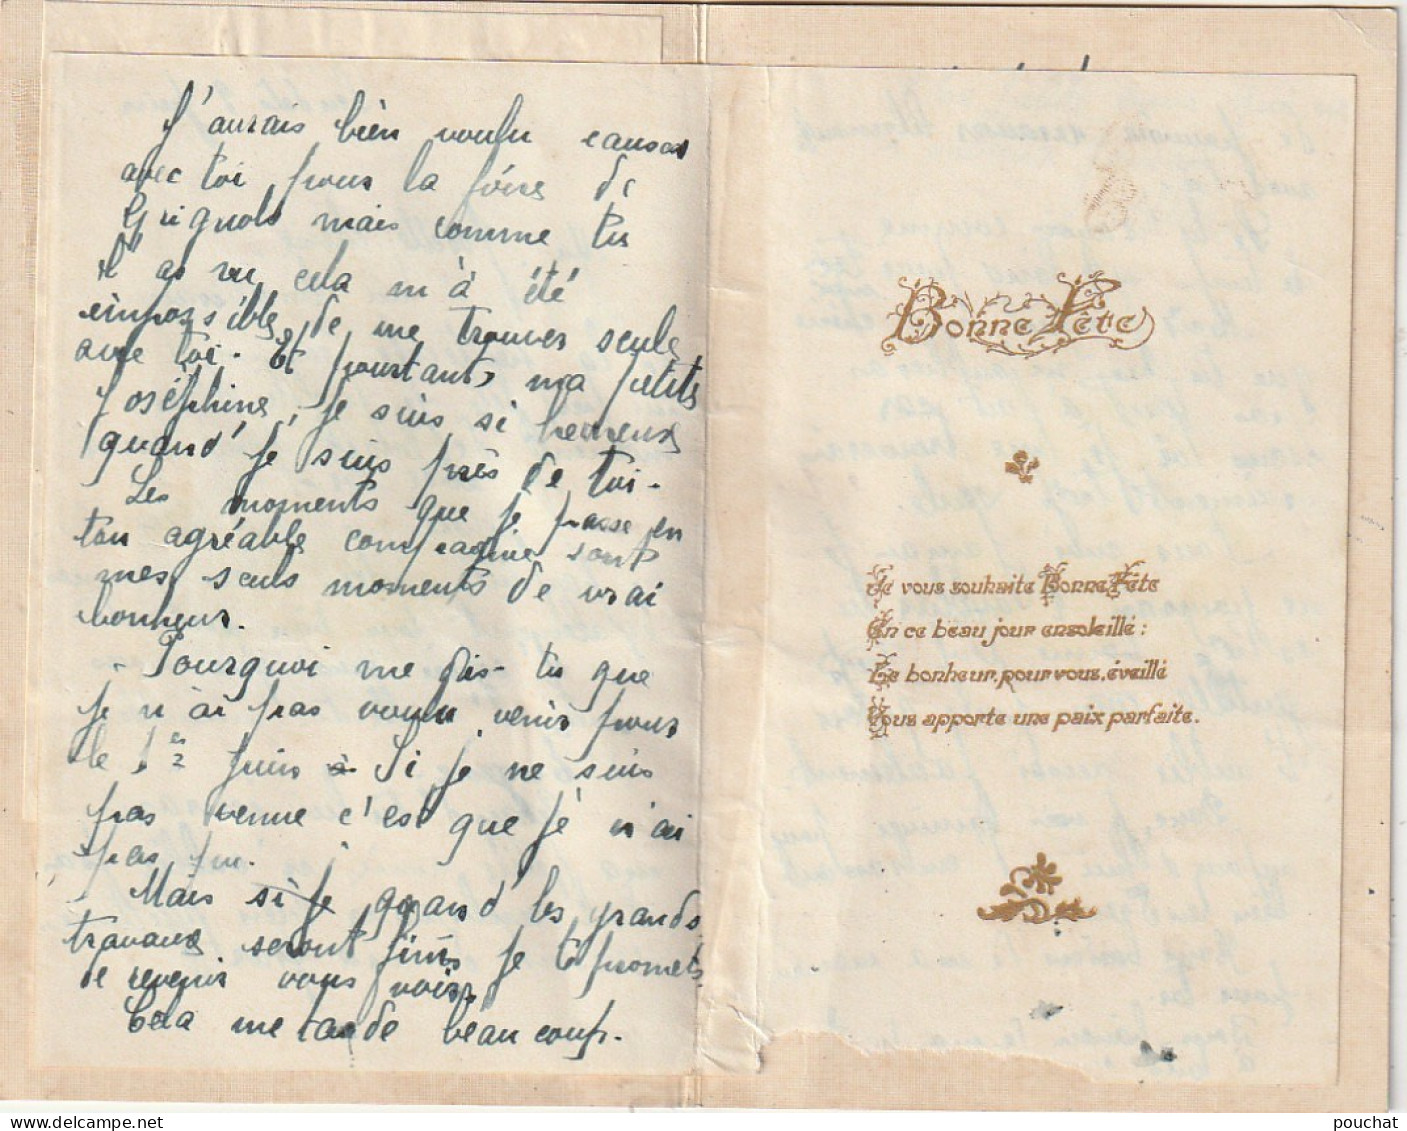 J'aurais bien voulu causer
avec toi pour la foire de
Grignols mais comme tu
l'as vu cela m'à été
impossible de me trouver seule
avec toi. Et pourtant, ma petite
Joséphine, je suis si heureux
quand je suis près de toi.
Les moments que je passe en
ton agréable compagnie sont
mes seuls moments de vrai
bonheur.
- Pourquoi me dis-tu que
je n'ai pas voulu venir pour
le 1er juin Si je ne suis
pas venue c'est que jé n'ai
pas pu.
Mais si je quand les grands
travaux seront finis je té promets
de revenir vous voir,
Cela me tarde beaucoup.
Bonne Fête
Je vous souhaite Bonne Fête
En ce beau jour ensoleillé :
Le bonheur, pour vous, éveillé
Vous apporte une paix parfaite.
pouchat